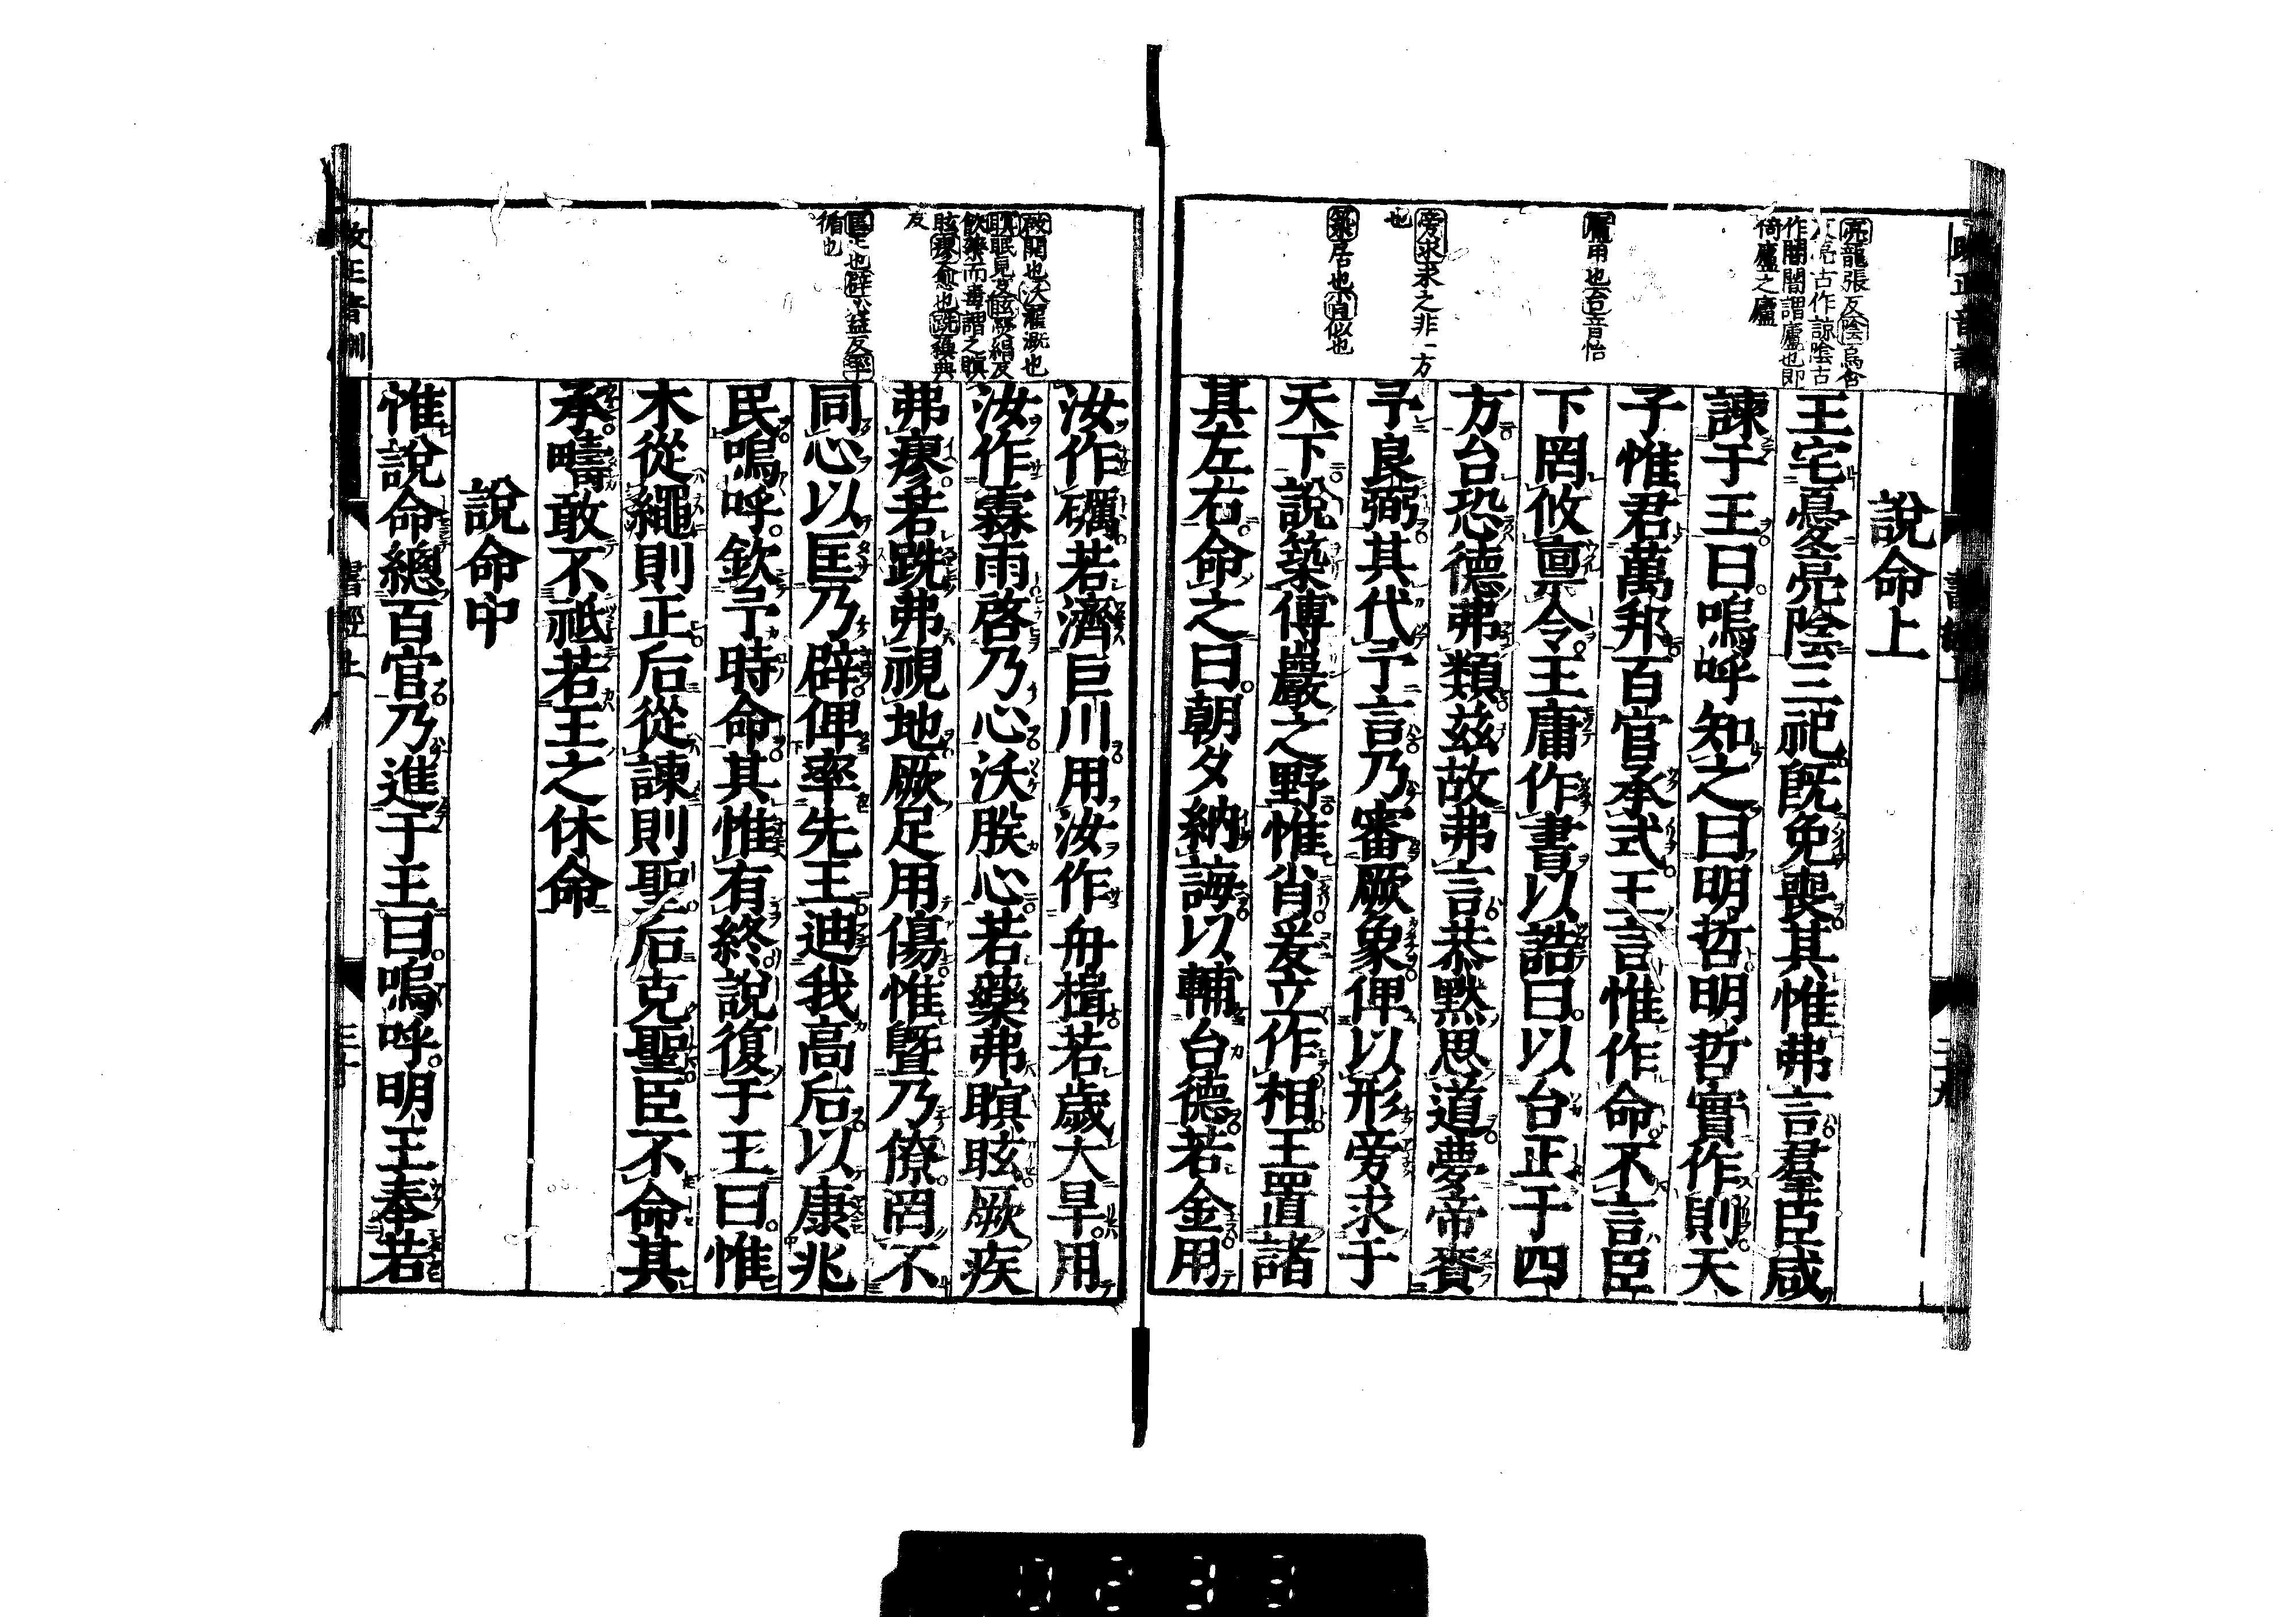 說命上
王宅憂亮陰三祀旣免喪其惟弗言羣臣咸
諫于王曰嗚呼知之曰明哲明哲實作則天
子惟君萬邦百官承式王言惟作命不言臣
下罔攸禀令王庸作書以誥曰以台正于四
方台恐德弗類茲故弗言恭黙思道夢帝賚
予良弼其代予言乃審厥象俾以形旁求于
天下說築傅巖之野惟肖爰立作相王置諸
其左右命之曰朝夕納誨以輔台德若金用
亮龍張反陰烏含
反亮古作諒陰古
作闇闇謂廬也即
倚廬之廬
庸用也台音怡
旁求求之非一方
也
築居也肖似也
書經上
二十九
汝作礪若濟巨川用汝作舟楫若歲大旱用
汝作霖雨啓乃心沃朕心若藥弗瞑眩厥疾
弗瘳若跣弗視地厥足用傷惟曁乃僚罔不
同心以匡乃辟俾率先王迪我高后以康兆
民嗚呼欽予時命其惟有終說復于王曰惟
木從繩則正后從諫則聖后克聖臣不命其
承疇敢不祗若王之休命
說命中
惟說命總百官乃進于王曰嗚呼明王奉若
啓開也沃灌漑也
瞑眠見反眩熒絹反
飲藥而毒謂之瞑
眩瘳愈也跣蘇典
反
匡正也辟必益反率
循也
改正音訓
書經上
三十
0233